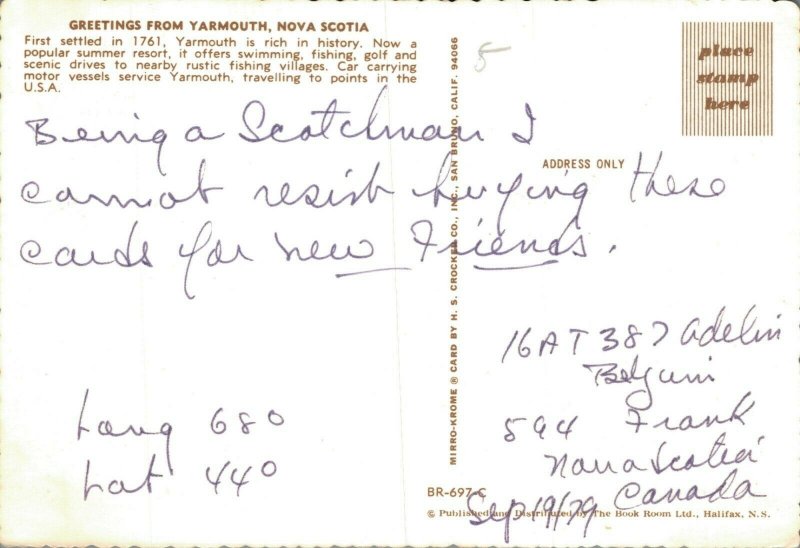 GREETINGS FROM YARMOUTH, NOVA SCOTIA
First settled in 1761, Yarmouth is rich in history. Now a
popular summer resort, it offers swimming, fishing, golf and
scenic drives to nearby rustic fishing villages. Car carrying
motor vessels service Yarmouth, travelling to points in the
U.S.A.
Being a Scotchman I
cannot resist buying these
cards for new Friends.
Long 680
Lat 440
MIRRO-KROME ® CARD BY H. S. CROCKER CO., INC., SAN BRUNO, CALIF. 94066
5
place
stamp
here
ADDRESS ONLY
16AT387 Adelin
594 Frank
Nova Scotia
Canada
Sep 19/79
BR-697-C
© Published and Distributed by The Book Room Ltd., Halifax, N.S.